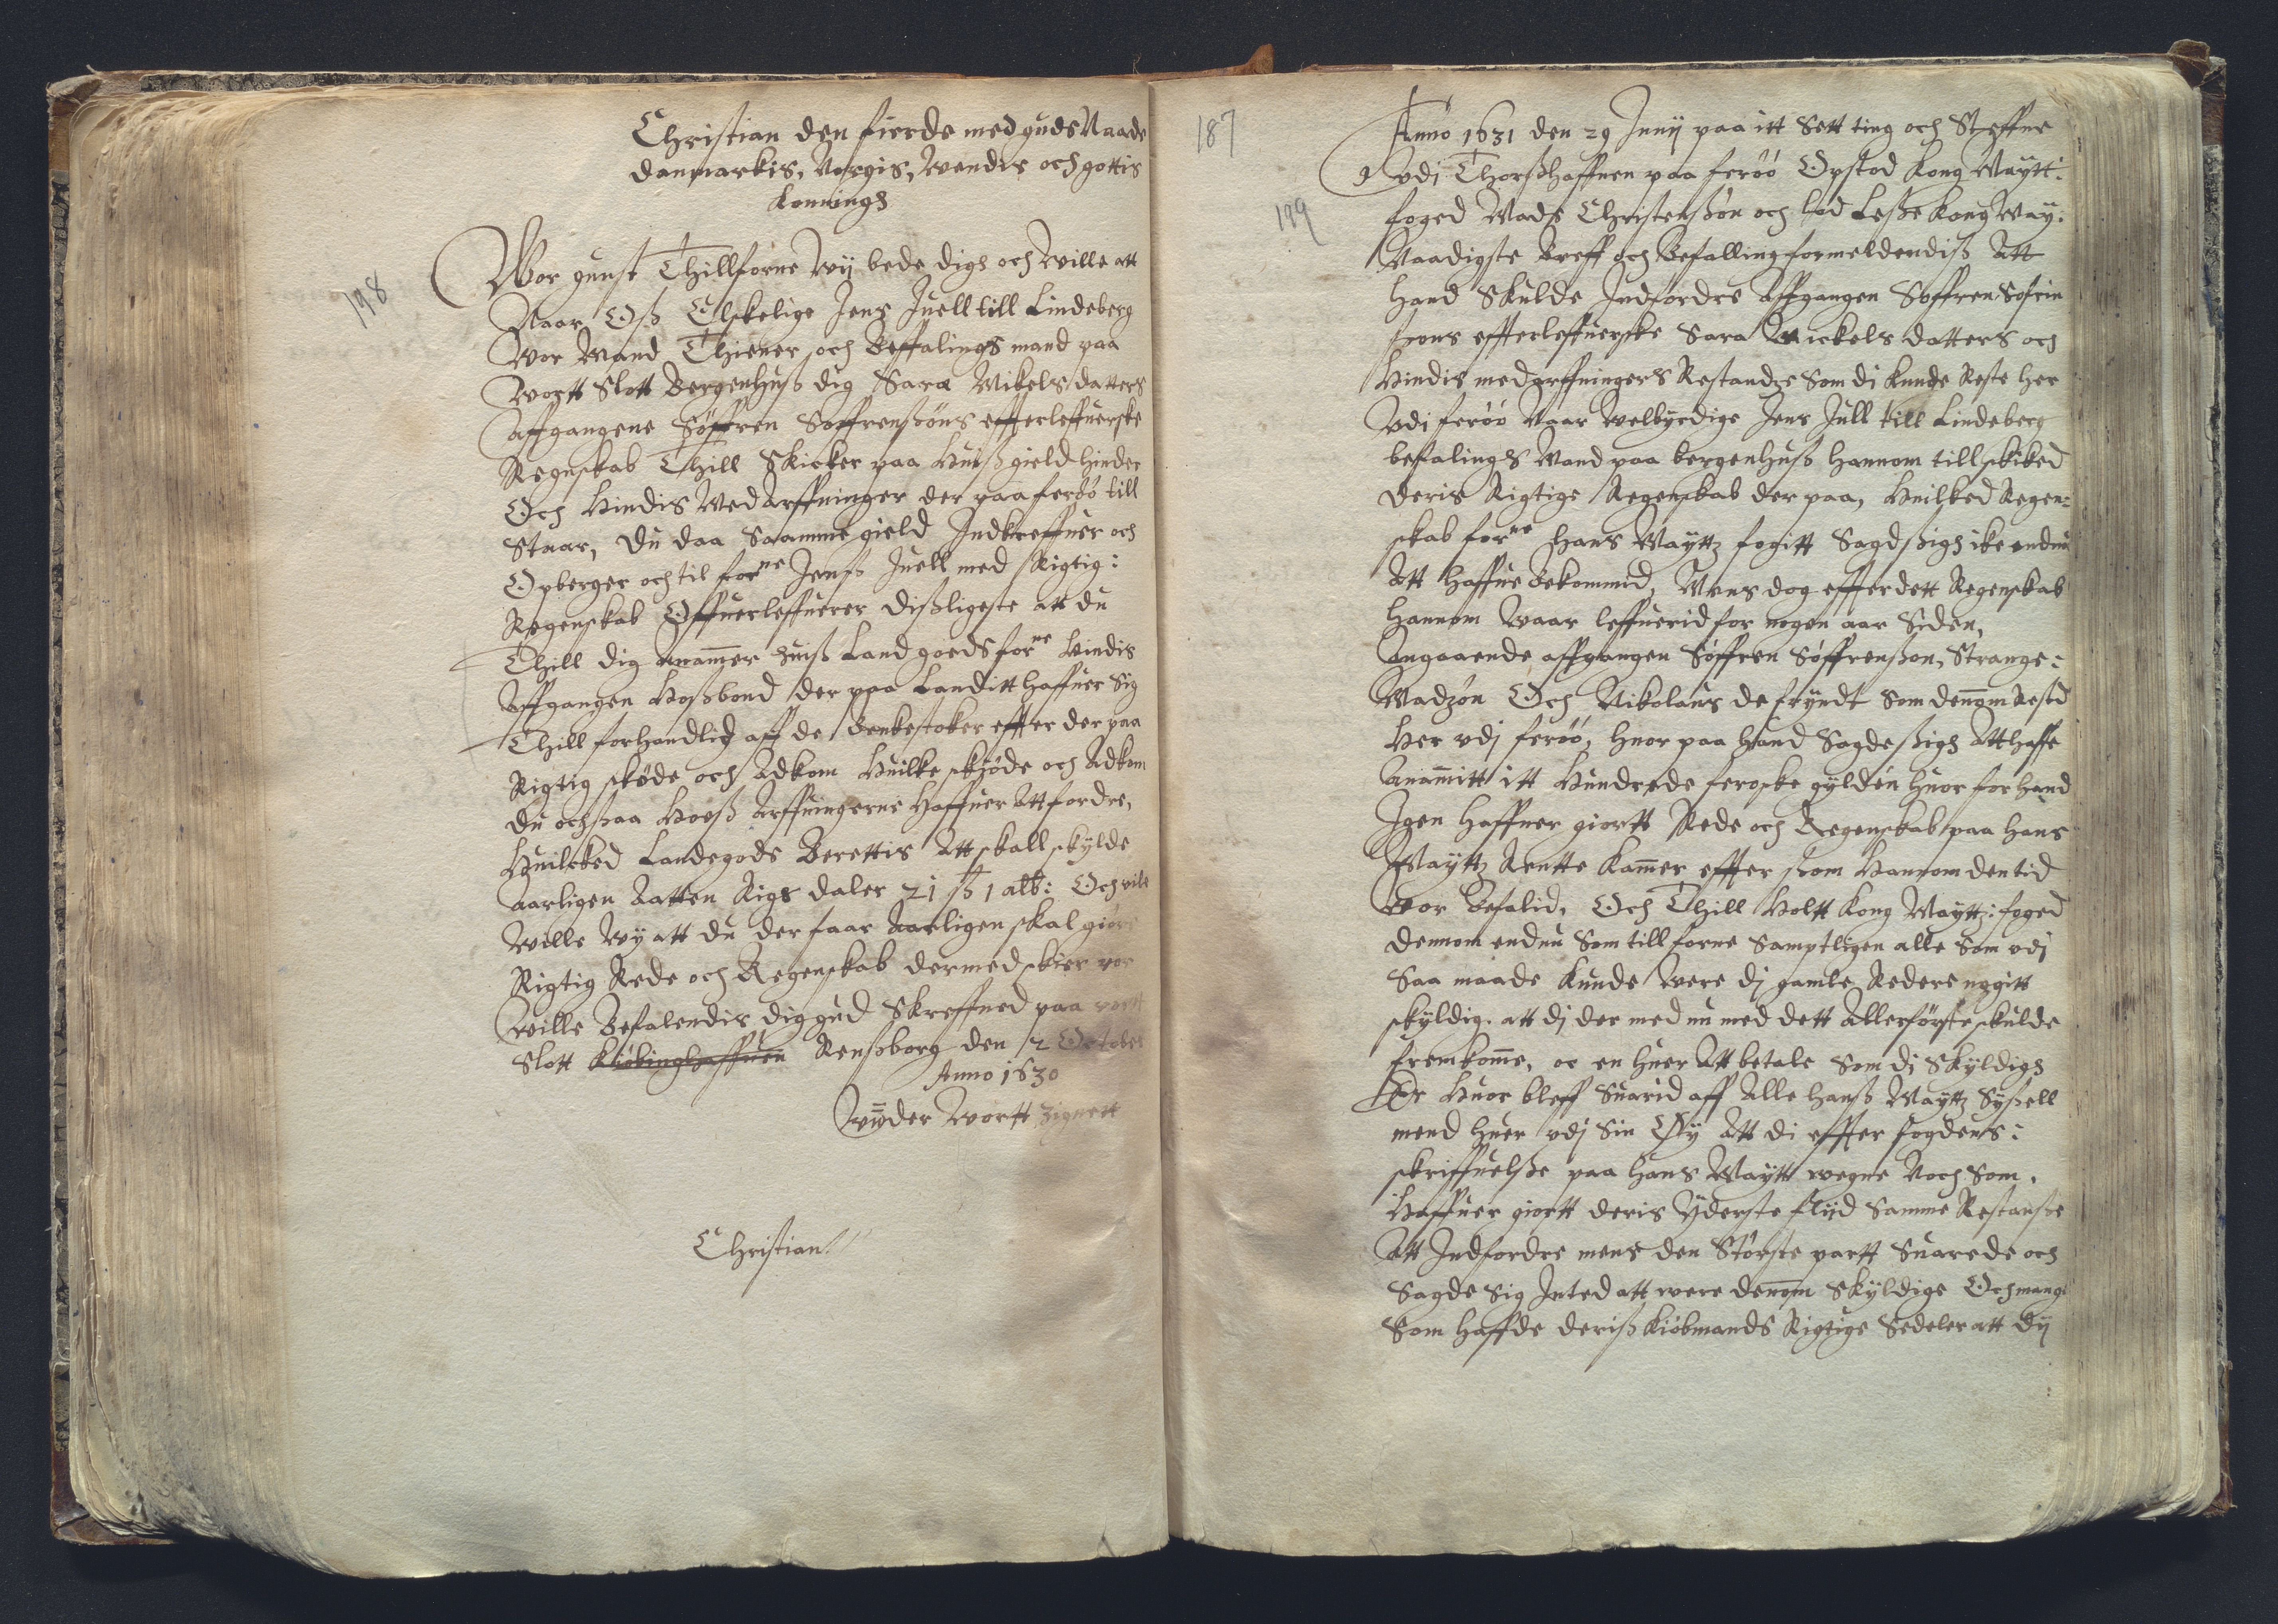 198
Christian den fierde med guds Naade
Danmarkis, Norgis, Wendis och gottis
Konningh
Wor gunst Thillforne Wij bede digh och Wille att
Naar Oß Elskelige Jens Juell till Lindeberg
Wor Mand Thiener och Beffalings mand paa
Wortt Slott Bergenhuß dig Sara Mikels datters
Affgangene Söffren Soffrensöns effterleffuerske
Regnskab Thill Skicker paa Huiß gield hinder
Och Hindis Med Arffuinger der paa feröö till
Staar, du daa Saamme gield Indkreffuer och
Opberger och til forne Jenß Juell med Rigtig:
Regenskab Offuerleffuerer dißligeste att du
Thill dig anammer huiß Land goeds forne Hindis
Affgangen Hoßbond der paa Landitt haffuer Sig
Thill forhandlid aff de Benkestoker effter der paa
Rigtig sköde och Adkom Huilke skiöde och Adkom
du och ßaa Hooß Arffuingerne Haffuer Att fordre,
Huilcked Landegods Berettis Att skall skylde
Aarligen Aatten Rigs daler 21 ß 1 alb: Och vile
Wille Wy att du der faar Aarligen skal giöre
Rigtig Rede och Regenskab dermed skier vor
Wille Befalendis dig gud Skreffued paa vortt
Slott Kiöbinghaffuen Rensborg den 2 October
Anno 1630
Wnder Wortt Zignett
Christian
187
199
Anno 1631 den 29 Junij paa itt Sett ting och Steffne
vdj Thorßhaffuen paa feröö Opstod Kong Maytt:
foged Mads Christenßön och lod Leße Kong May:
Naadigste Breff och Befalling formeldendiß Att
Hand Skulde Indfordre Affgangen Söffren Sofrin
sons effterleffuerske Sara Mickels datters och
Hindis medarffuingers Restandze Som di Kunde Reste her
Vdi feröö Naar Welbyrdige Jens Jull till Lindeberg
befalings Mand paa bergenhuß hannom till skiked
deris Rigtige Regenskab der paa, Huilked Regen:
skab forne Hans Mayttz fogitt Sagd ßigh ike endnu
Att Haffue Bekommed, Mens dog effter dett Regenskab
hannom Waar leffuerid for nogen aar Siden,
Angaaende affgangen Söffren Söffrenßon, Strange:
Madzön Och Nikolaus de fryndt Som dennom Restd
Her vdj feröö, huor paa hand Sagde ßigh Att haffe
Anammitt itt Hundrede feroske gylden huor for hand
Igen Haffuer giortt Rede och Regenskab paa Hans
Mayttz Rentte Kammer effter ßom Hannom den tid
Wor Befalid, Och Thill Holtt Kong Mayttz: foged
dennom endnu Som till forne Samptligen alle Som vdj
Saa maade Kunde Were dj gamle Redere nogitt
skyldig. att dj der med nu med dett Allerförste skulde
fremkomme, oc en huer Att betale Som dj Skyldigh
Er Huor bleff Suarid aff Alle Hanß Mayttz Syßell
mend huer vdj Sin Sy Att di effter fogdens:
skriffuelße paa Hans Maytt wegne Noch Som,
Haffuer giortt deris Yderste flijd Samme Restanße
Att Indfordre mens den Störste partt Suarede och
Sagde Sig Inted att were dennom Skyldige Och mange
Som Haffde deriß Kiöbmands Rigtige Sedeler att dij